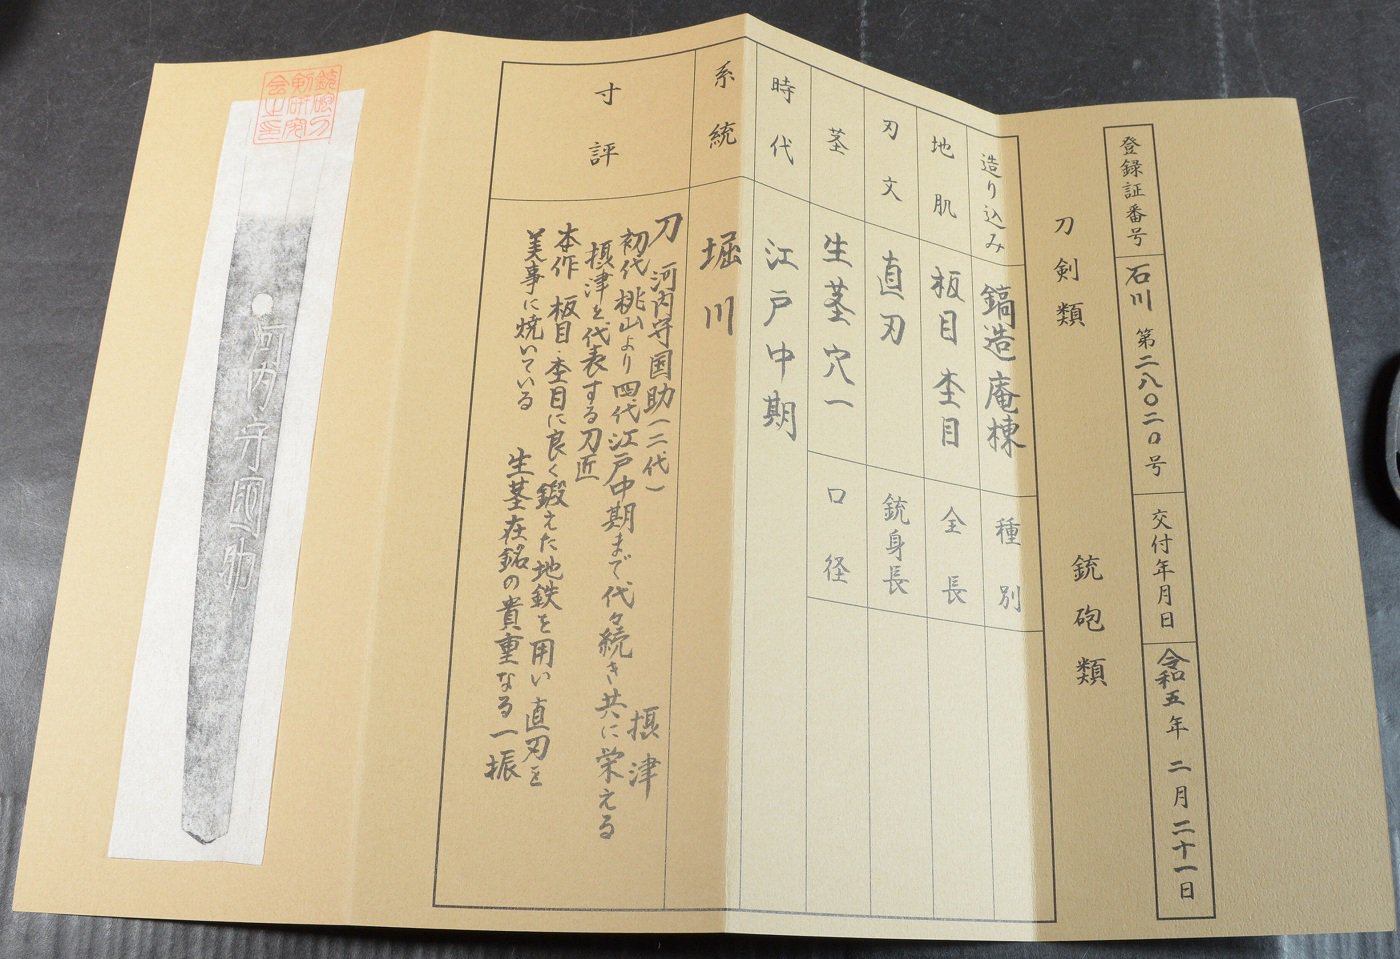 登録証番号 石川 第二八〇二〇号 交付年月日 令和五年 二月 二十一日
刀剣類
銃砲類
造り込み 鎬造庵棟
種別
地肌 板目 杢目
全長
刃文 直刃
銃身長
茎 生茎穴一
口径
時代 江戸中期
系統 堀川
寸評
刀 河内守国助(二代) 摂津
初代桃山より四代江戸中期まで代々続き共に栄える
摂津を代表する刀匠
本作 板目・杢目に良く鍛えた地鉄を用い直刃を
美事に焼いている 生茎在銘の貴重なる一振
河内守国助